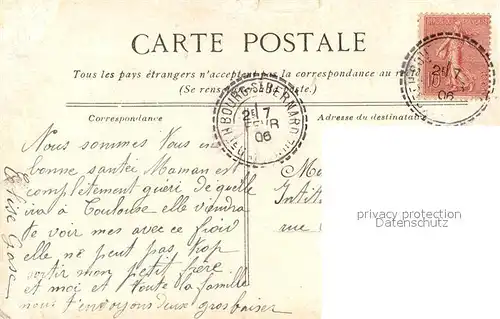 CARTE POSTALE
Tous les pays étrangers n'acceptent pas la correspondance au re
(Se rens poste.)
Correspondance
Adresse du destinataire
BOURG-ST-BERNARD
2E 7
FEVR
06
2E 7
06
Nous sommes Tous en
bonne santée Maman est
complètement gueri de quelle
ira à Toulouse elle viendra
te voir mes avec ce froid
elle ne peut pas trop
sortir mon petit frère
et moi et toute la famille
nous t'envoyons deux gros baiser
M
Intit
rue
privacy protection
Datenschutz